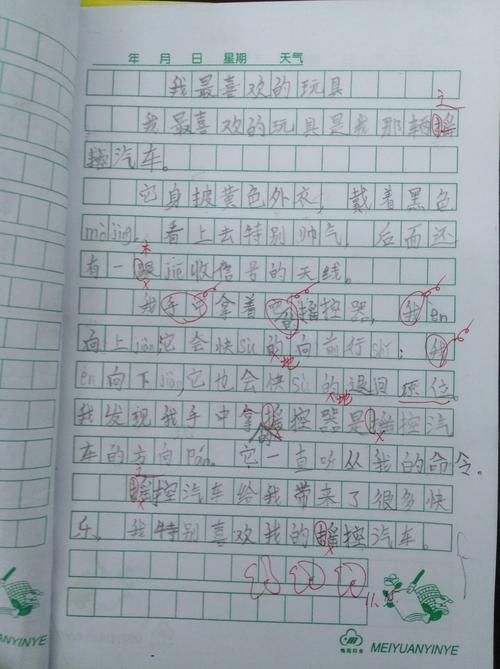 年 月 日 星期 天气
我最喜欢的玩具
我最喜欢的玩具是我那辆摇
控汽车。
它身披黄色外衣,戴着黑色
mò jìng,看上去特别帅气,后面还
有一根jiē收信号的天线。
我手中拿着摇控器,我èn
向上jiàn它会快sù的向前行shǐ;我
èn向下jiàn,它也会快sù的退回原位。
我发现我手中拿的摇控器是摇控汽
车的方向pán。它一直听从我的命令。
摇控汽车给我带来了很多快
乐。我特别喜欢我的摇控汽车。
11.25
MEIYUANYINYE
MEIYUANYINYE